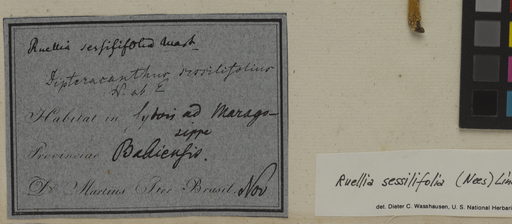 Ruellia sessilifolia Mart
Dipteracanthus sessilifolius
N. ab E
Habitat in sylvis ad Marago-
sippe
Provinciae Bahiensis.
Dr. Martius Iter Brasil. Nov
Ruellia sessilifolia (Nees) Lind
det. Dieter C. Wasshausen, U. S. National Herbari